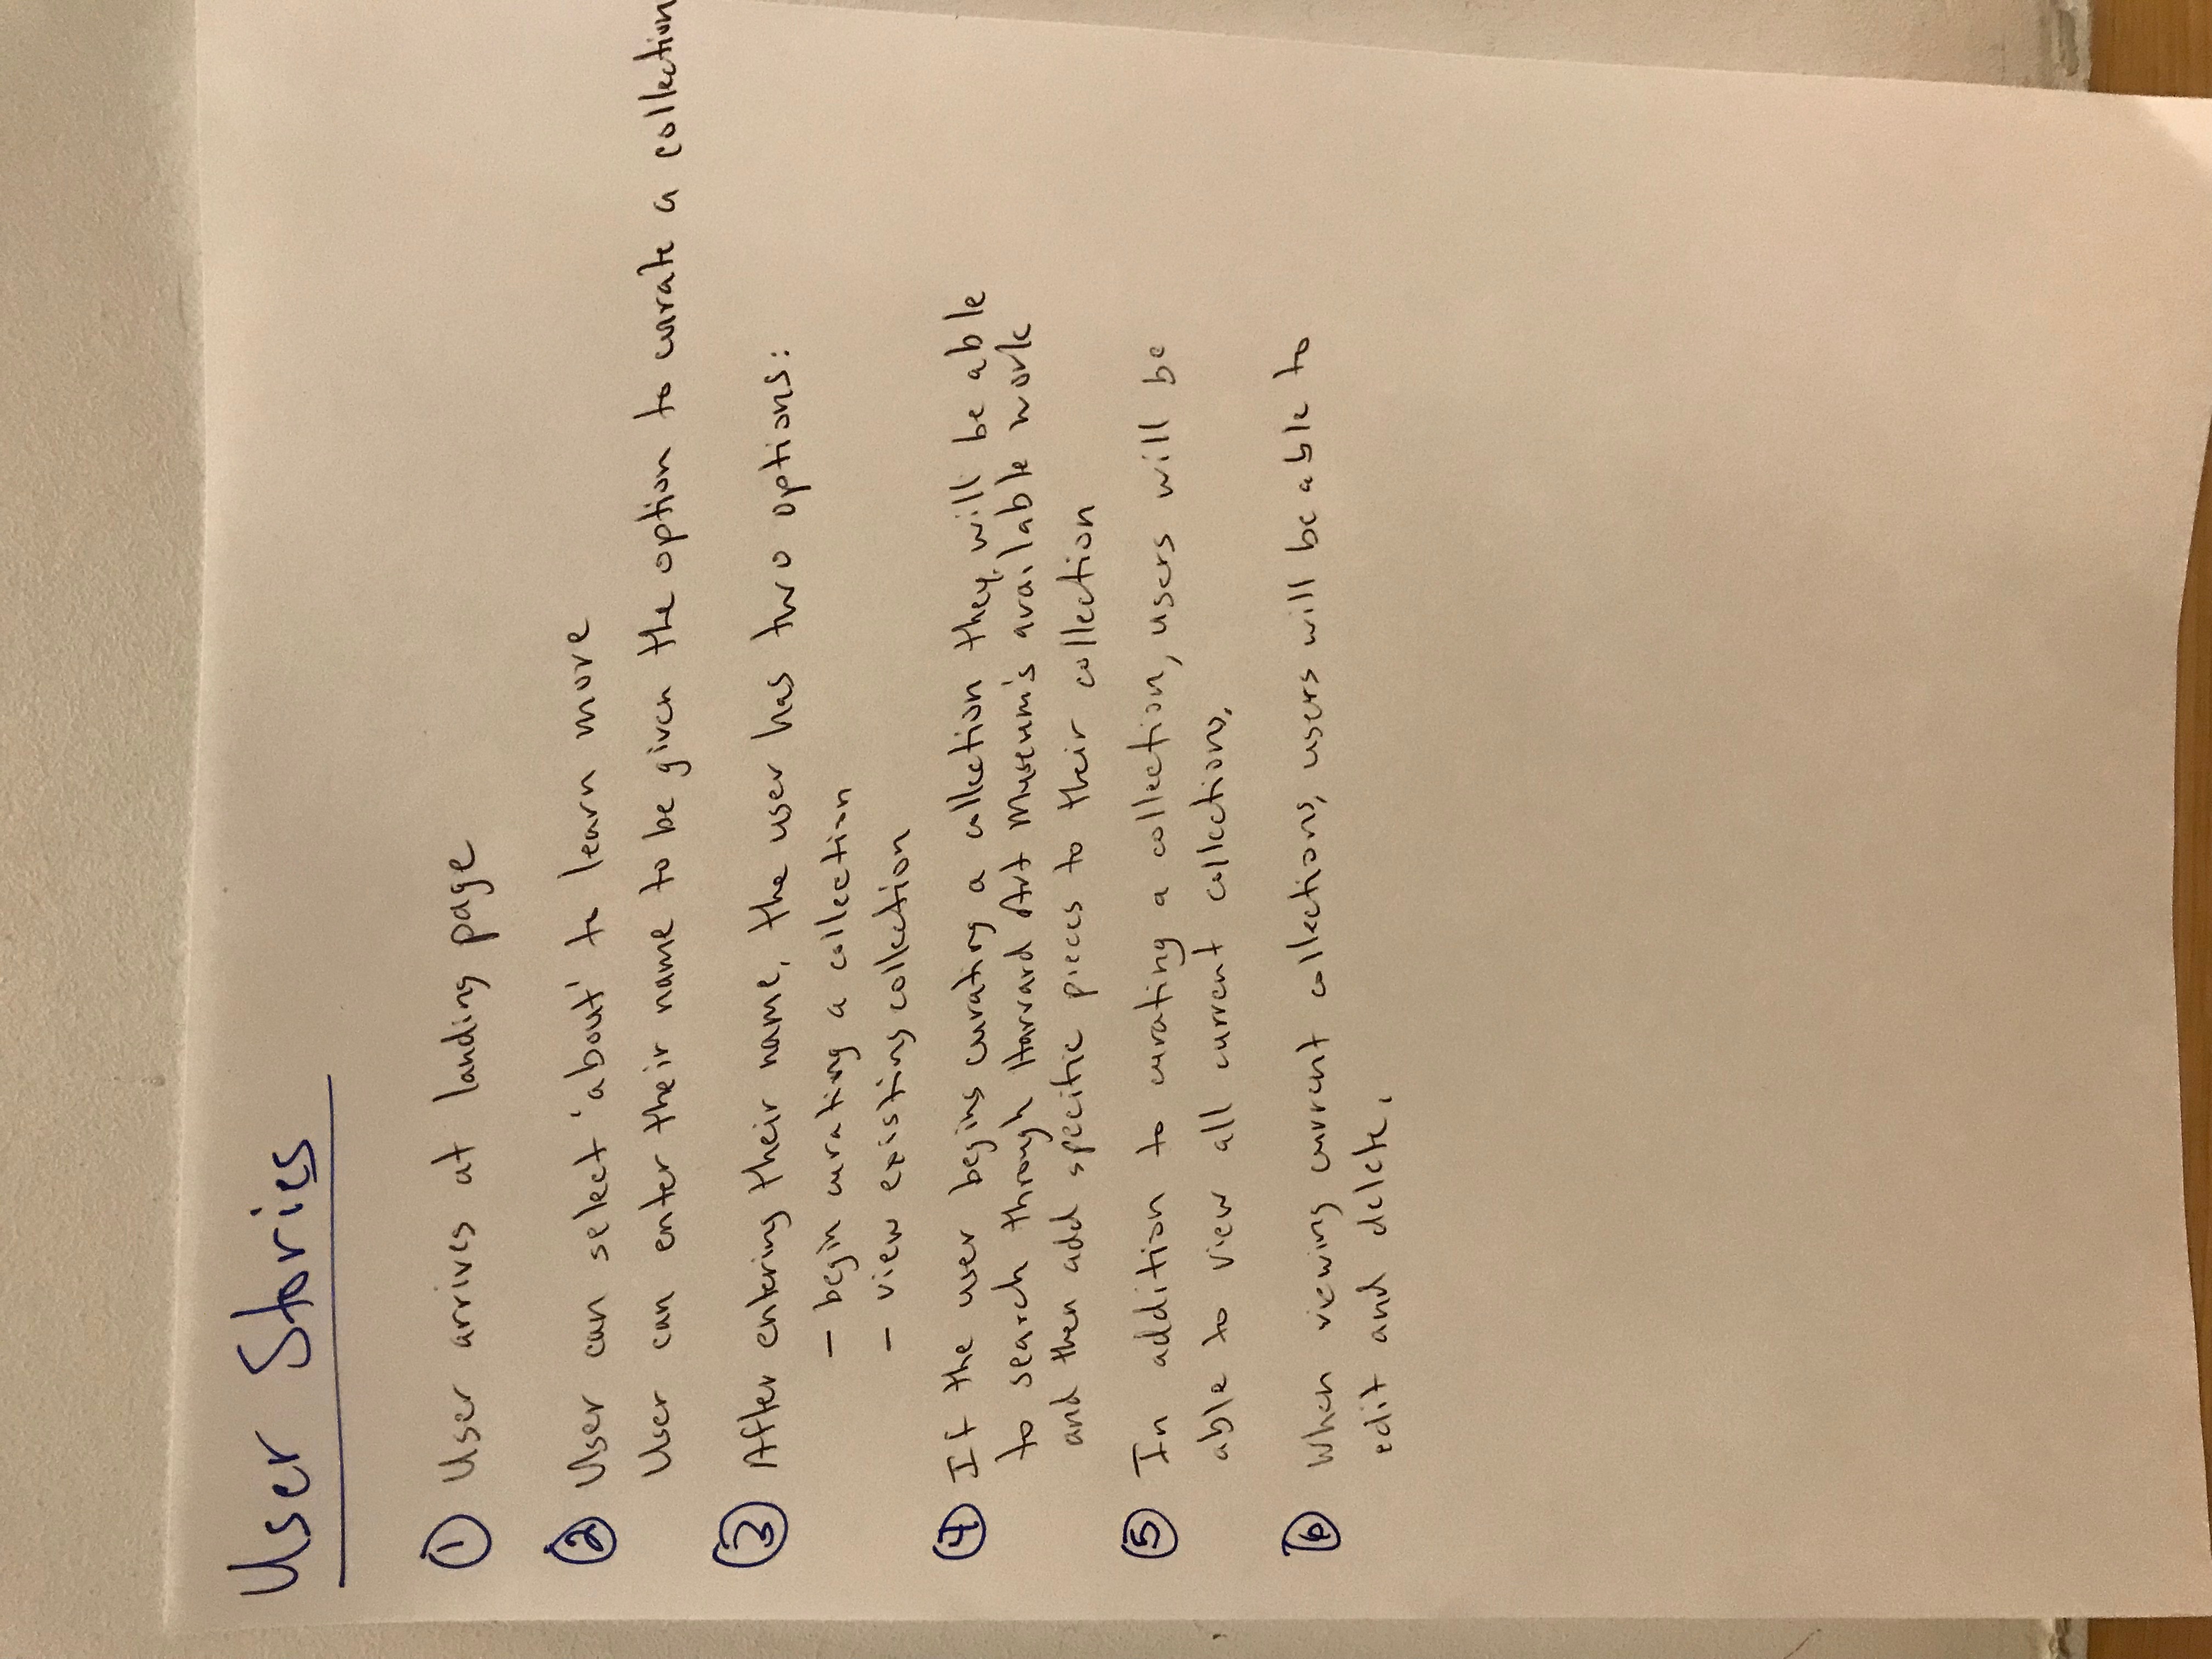 User Stories
① User arrives at landing page
② User can select 'about' to learn more
User can enter their name to be given the option to curate a collection
③ After entering their name, the user has two options:
– begin curating a collection
– view existing collection
④ If the user begins curating a collection they will be able
to search through Harvard Art Museum's available work
and then add specific pieces to their collection
⑤ In addition to curating a collection, users will be
able to view all current collections.
⑥ When viewing current collections, users will be able to
edit and delete.